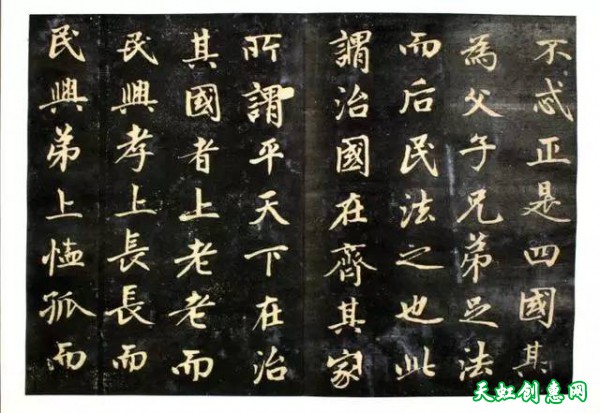 不忒正是四國其
為父子兄弟足法
而后民法之也此
謂治國在齊其家
所謂平天下在治
其國者上老老而
民興孝上長長而
民興弟上恤孤而
天虹创惠网